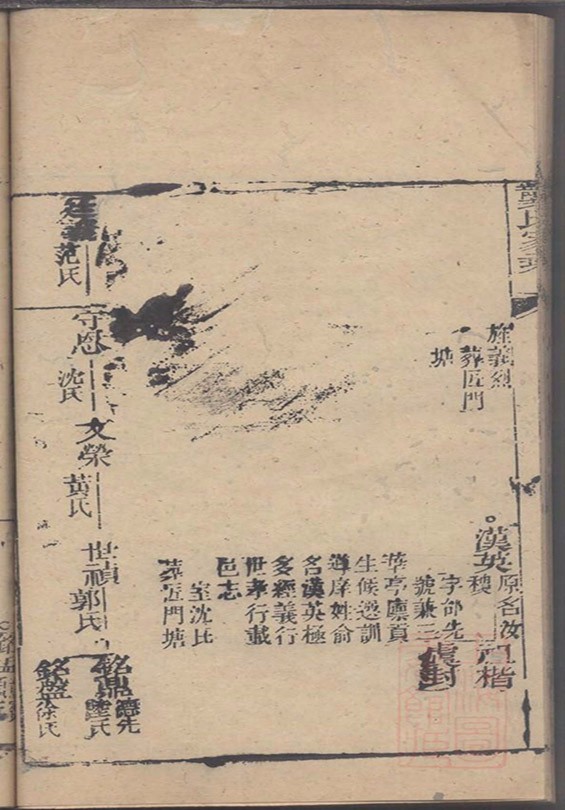 氏家乘
旌義烈
葬匠門
塘
漢英原名汝
穟
字部先
號兼三
華亭廩貢
生候選訓
導庠姓俞
名漢英極
多經義行
世孝行載
邑志
室沈氏
葬匠門塘
祖楷
虞封
范氏
守恩
沈氏
文榮
黄氏
世禎
郭氏
銘鼎
德先
陸氏
銘盤
徐氏